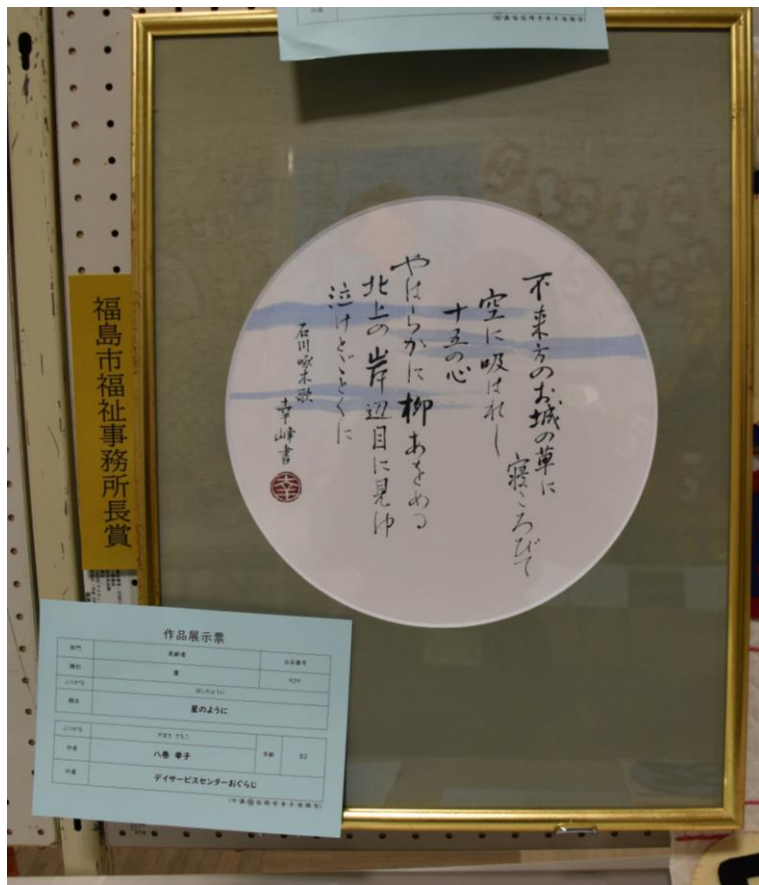 不来方のお城の草に
寝ころびて
空に吸はれし
十五の心
やはらかに柳あをめる
北上の岸辺目に見ゆ
泣けとごとくに
石川啄木歌
幸峰書
幸
福島市福祉事務所長賞
作品展示票
部門
高齢者
出品番号
種別
書
929
ふりがな
ほしのように
題名
星のように
ふりがな
やまき さちこ
作者
八巻 幸子
年齢
82
所属
デイサービスセンターおぐらじ
所属